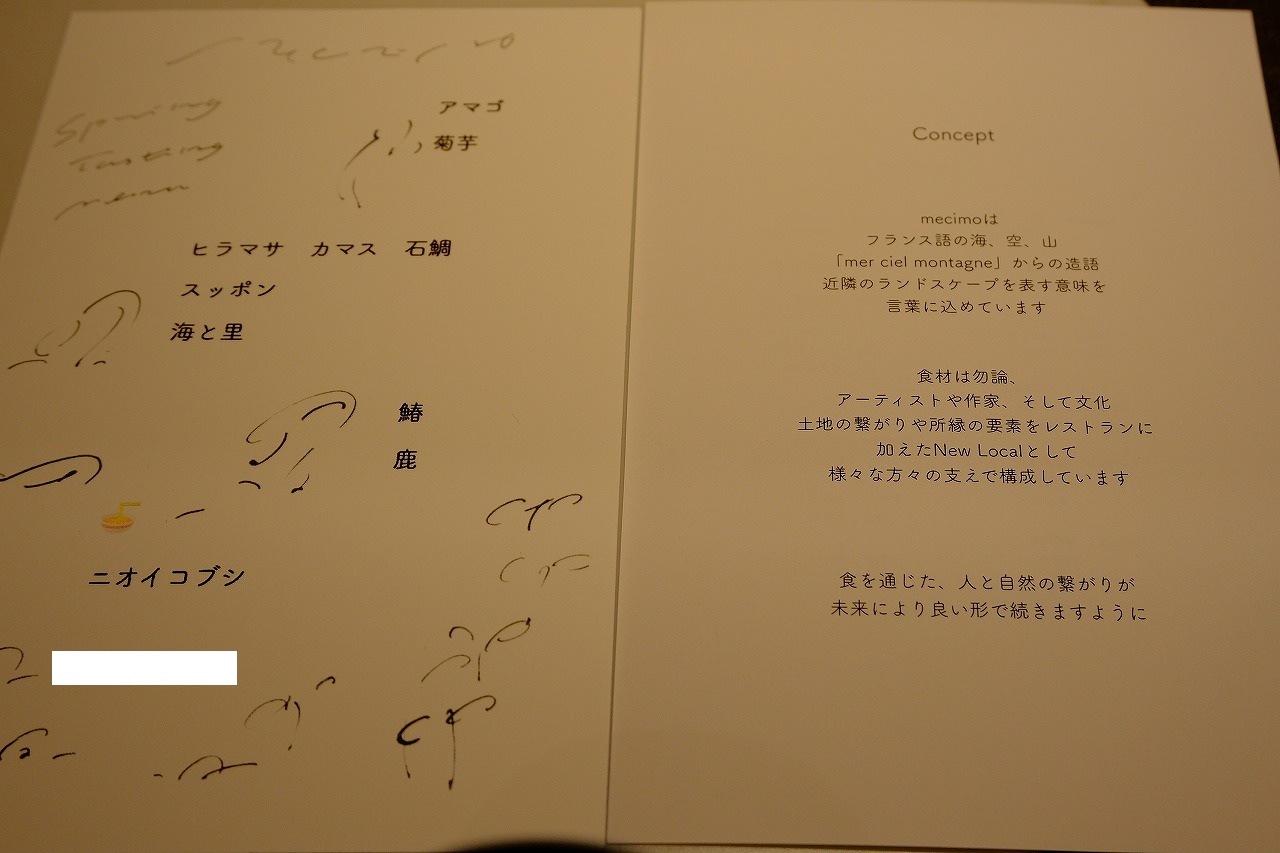 mecimo
Spring
Tasting
menu
アマゴ
菊芋
ヒラマサ カマス 石鯛
スッポン
海と里
鰆
鹿
ニオイコブシ
Concept
mecimoは
フランス語の海、空、山
「mer ciel montagne」からの造語
近隣のランドスケープを表す意味を
言葉に込めています
食材は勿論、
アーティストや作家、そして文化
土地の繋がりや所縁の要素をレストランに
加えたNew Localとして
様々な方々の支えで構成しています
食を通じた、人と自然の繋がりが
未来により良い形で続きますように